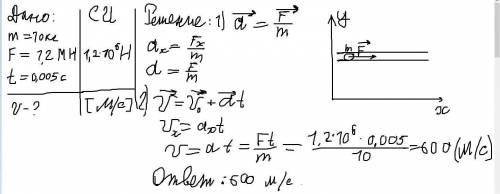 Дано:
m = 10 кг
F = 1,2 МН
t = 0,005 с
v - ?
СИ
1,2·10⁶ Н
[м/с]
Решение: 1) a⃗ = F⃗/m
aₓ = Fₓ/m
a = F/m
2) v⃗ = v⃗₀ + a⃗t
vₓ = aₓt
v = at = Ft/m = 1,2·10⁶·0,005/10 = 600 (м/с)
Ответ: 600 м/с.
y
m F⃗
x